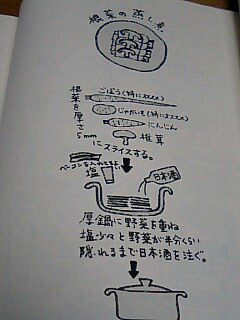 根菜の蒸し煮
根菜を厚さ5mm
ごぼう(特にオススメ)
じゃがいも(特にオススメ)
にんじん
椎茸
にスライスする。
ベーコンを入れてもよい
塩
日本酒
厚鍋に野菜を重ね
塩少々と野菜が半分くらい
隠れるまで日本酒を注ぐ。